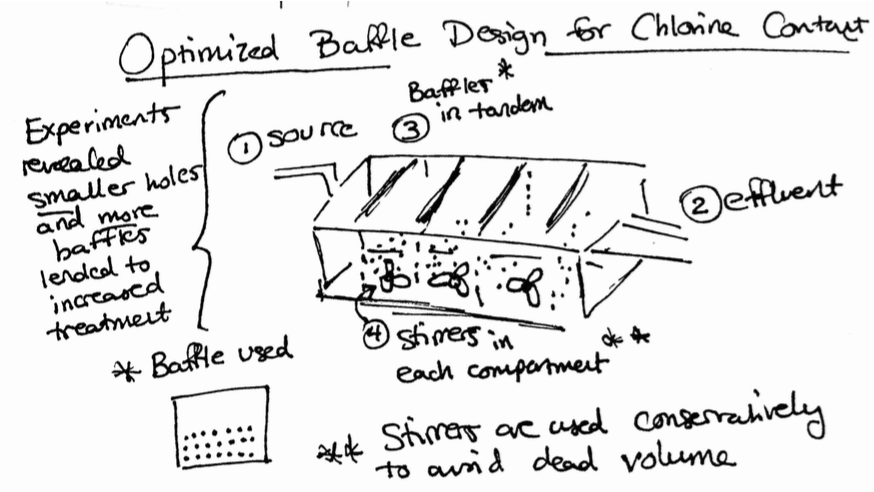 Optimized Baffle Design for Chlorine Contact
Experiments
revealed
smaller holes
and more
baffles
lended to
increased
treatment
1 source
3 Baffles *
in tandem
2 effluent
4 stirrers in
each compartment **
* Baffle used
** Stirrers are used conservatively
to avoid dead volume